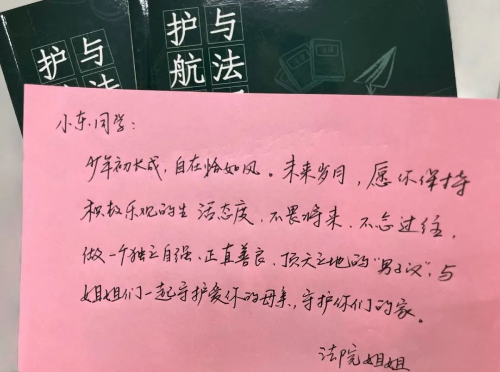 护与
航法
护与
航法
小东同学：
少年初长成，自在恰如风。未来岁月，愿你保持
积极乐观的生活态度，不畏将来，不念过往，
做一个独立自强、正直善良、顶天立地的“男子汉”，与
姐姐们一起守护爱你的母亲，守护你们的家。
法院姐姐